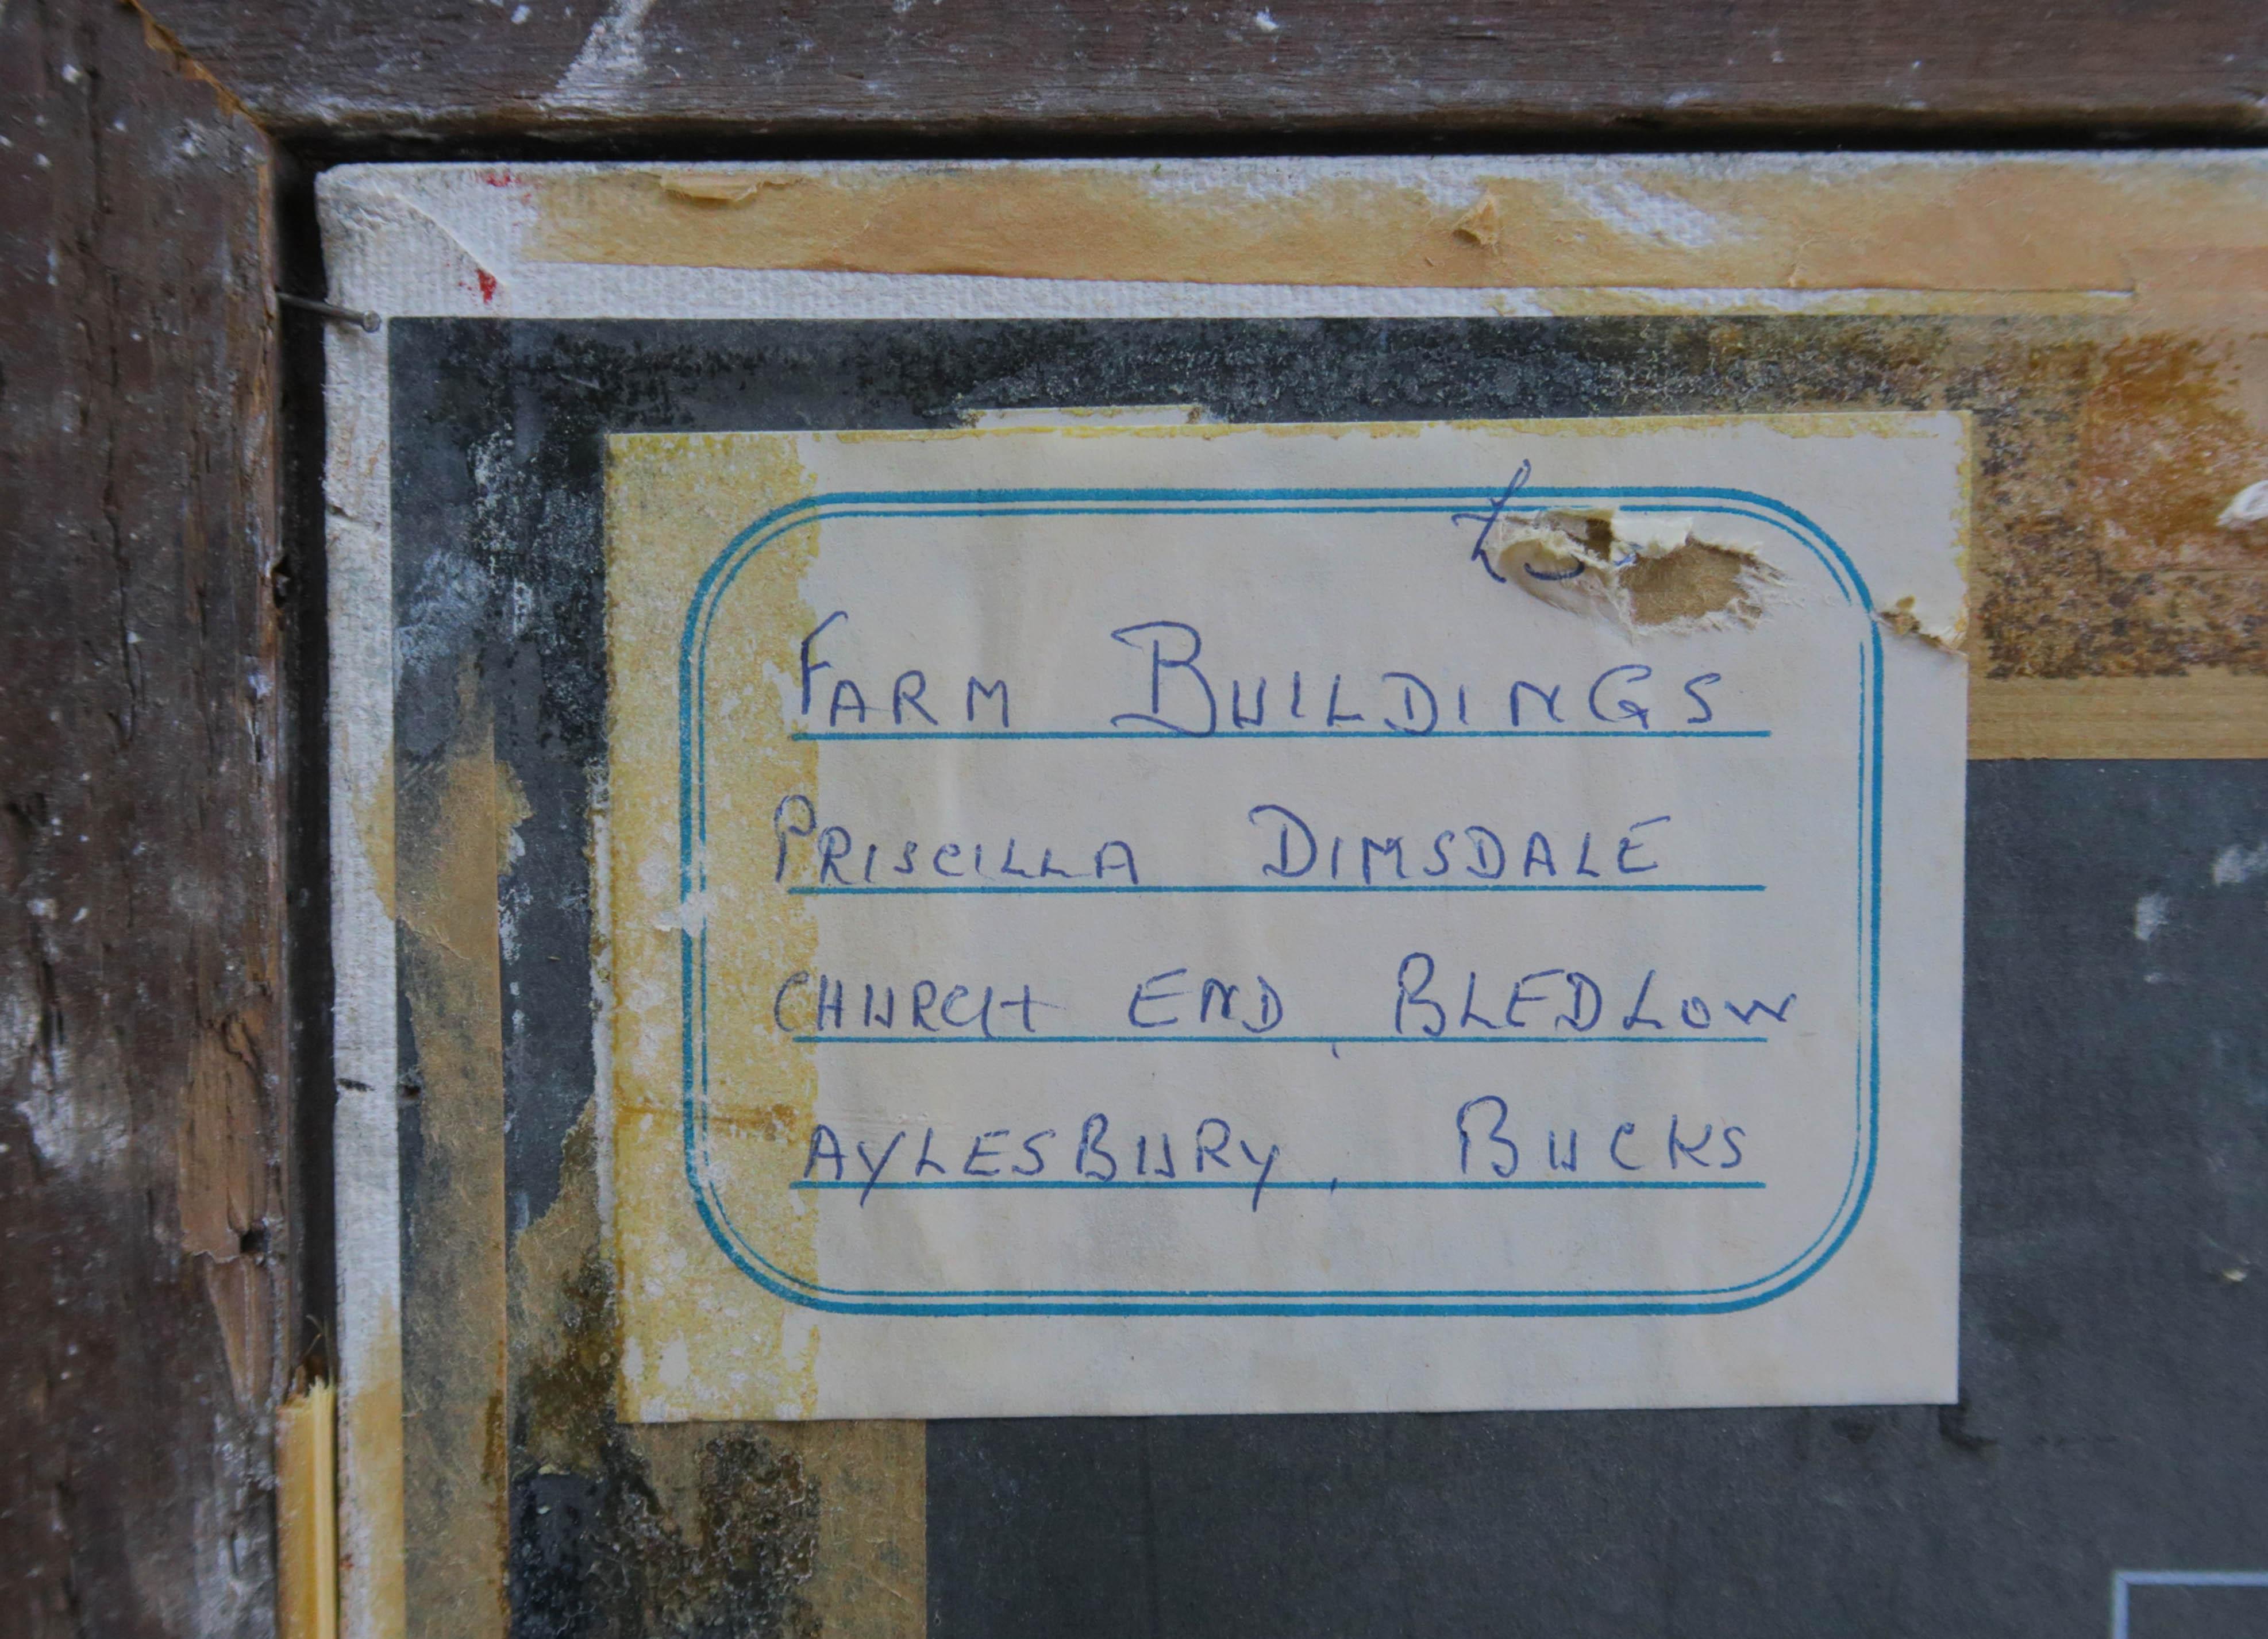 £
FARM BUILDINGS
PRISCILLA DIMSDALE
CHURCH END, BLEDLOW
AYLESBURY, BUCKS